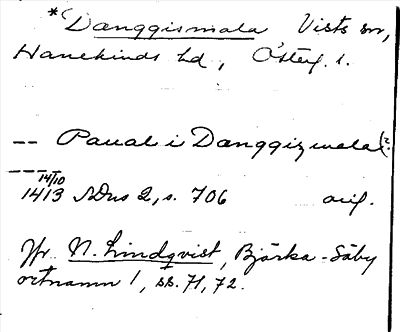 *Danggismala Vists sn,
Hanekinds hd, Österg. l.
-- Paual i Danggizmala(?
---
14/10
1413 SDns 2, s. 706 orig.
Jfr N. Lindqvist, Bjärka-Säby
ortnamn 1, ss. 71, 72.